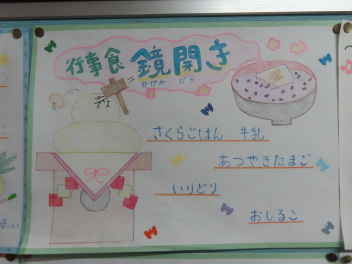 行事食 鏡開き
かがみ びら
さくらごはん 牛乳
あつやきたまご
いりどり
おしるこ